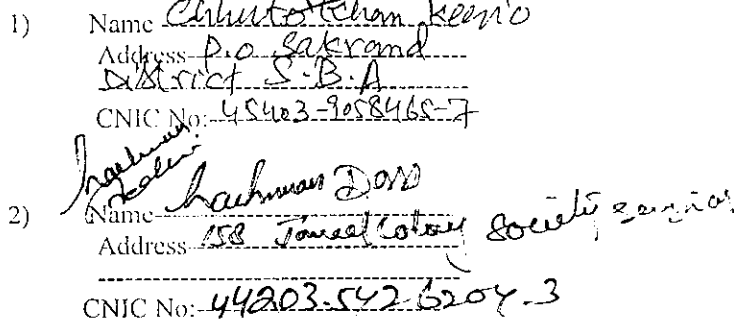 1) Name Chhuto Khan Keerio
Address P.O Sakrand
District S.B.A
CNIC No: 45403-9058465-7
2) Name Lachman Dass
Address 158 Colony Society
CNIC No: 44203-5426204-3